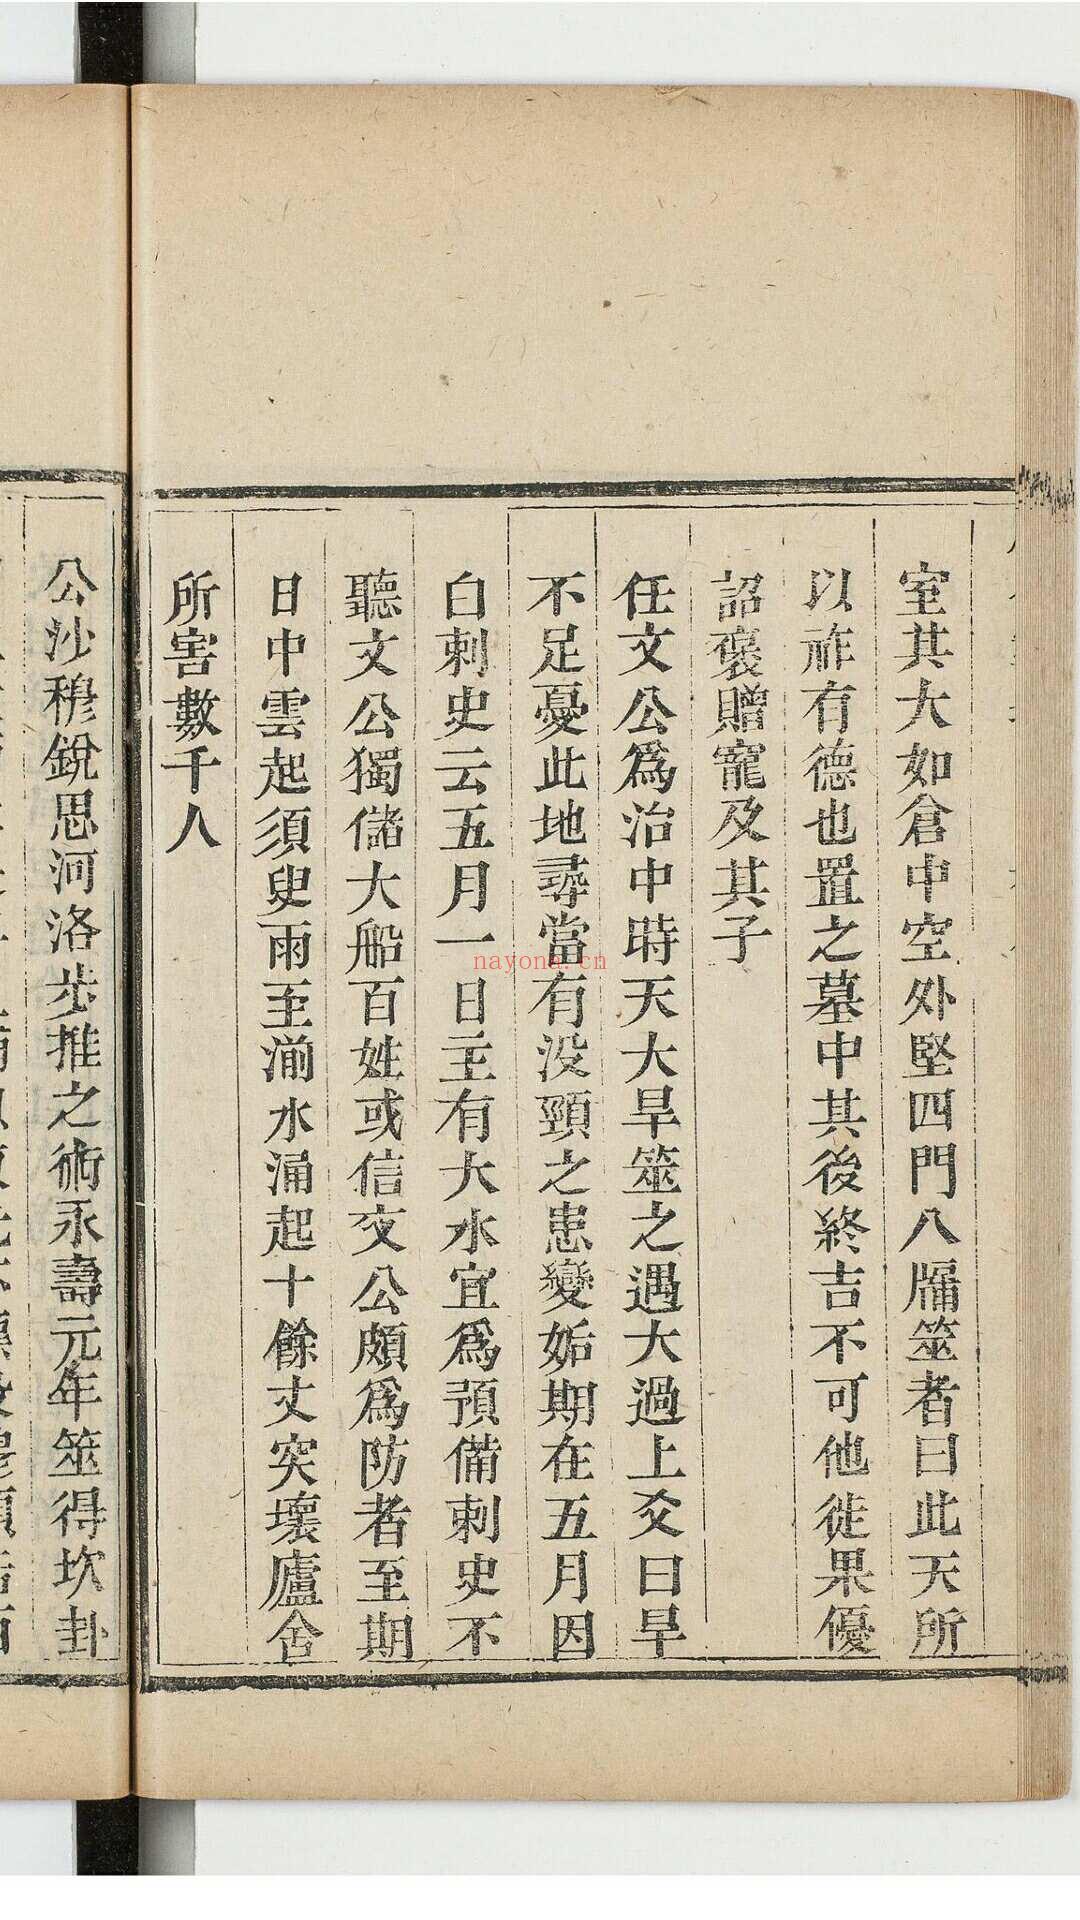 室其大如倉中空外堅四門八牖筮者曰此天所
以祚有德也置之墓中其後終吉不可他徙果優
詔褒贈寵及其子
任文公爲治中時天大旱筮之遇大過上爻曰旱
不足憂此地尋當有没頸之患變姤期在五月因
白刺史云五月一日主有大水宜爲預備刺史不
聽文公獨儲大船百姓或信文公頗爲防者至期
日中雲起須臾雨至湔水涌起十餘丈突壞廬舍
所害數千人
公沙穆銳思河洛步推之術永壽元年筮得坎卦
nayona.cn